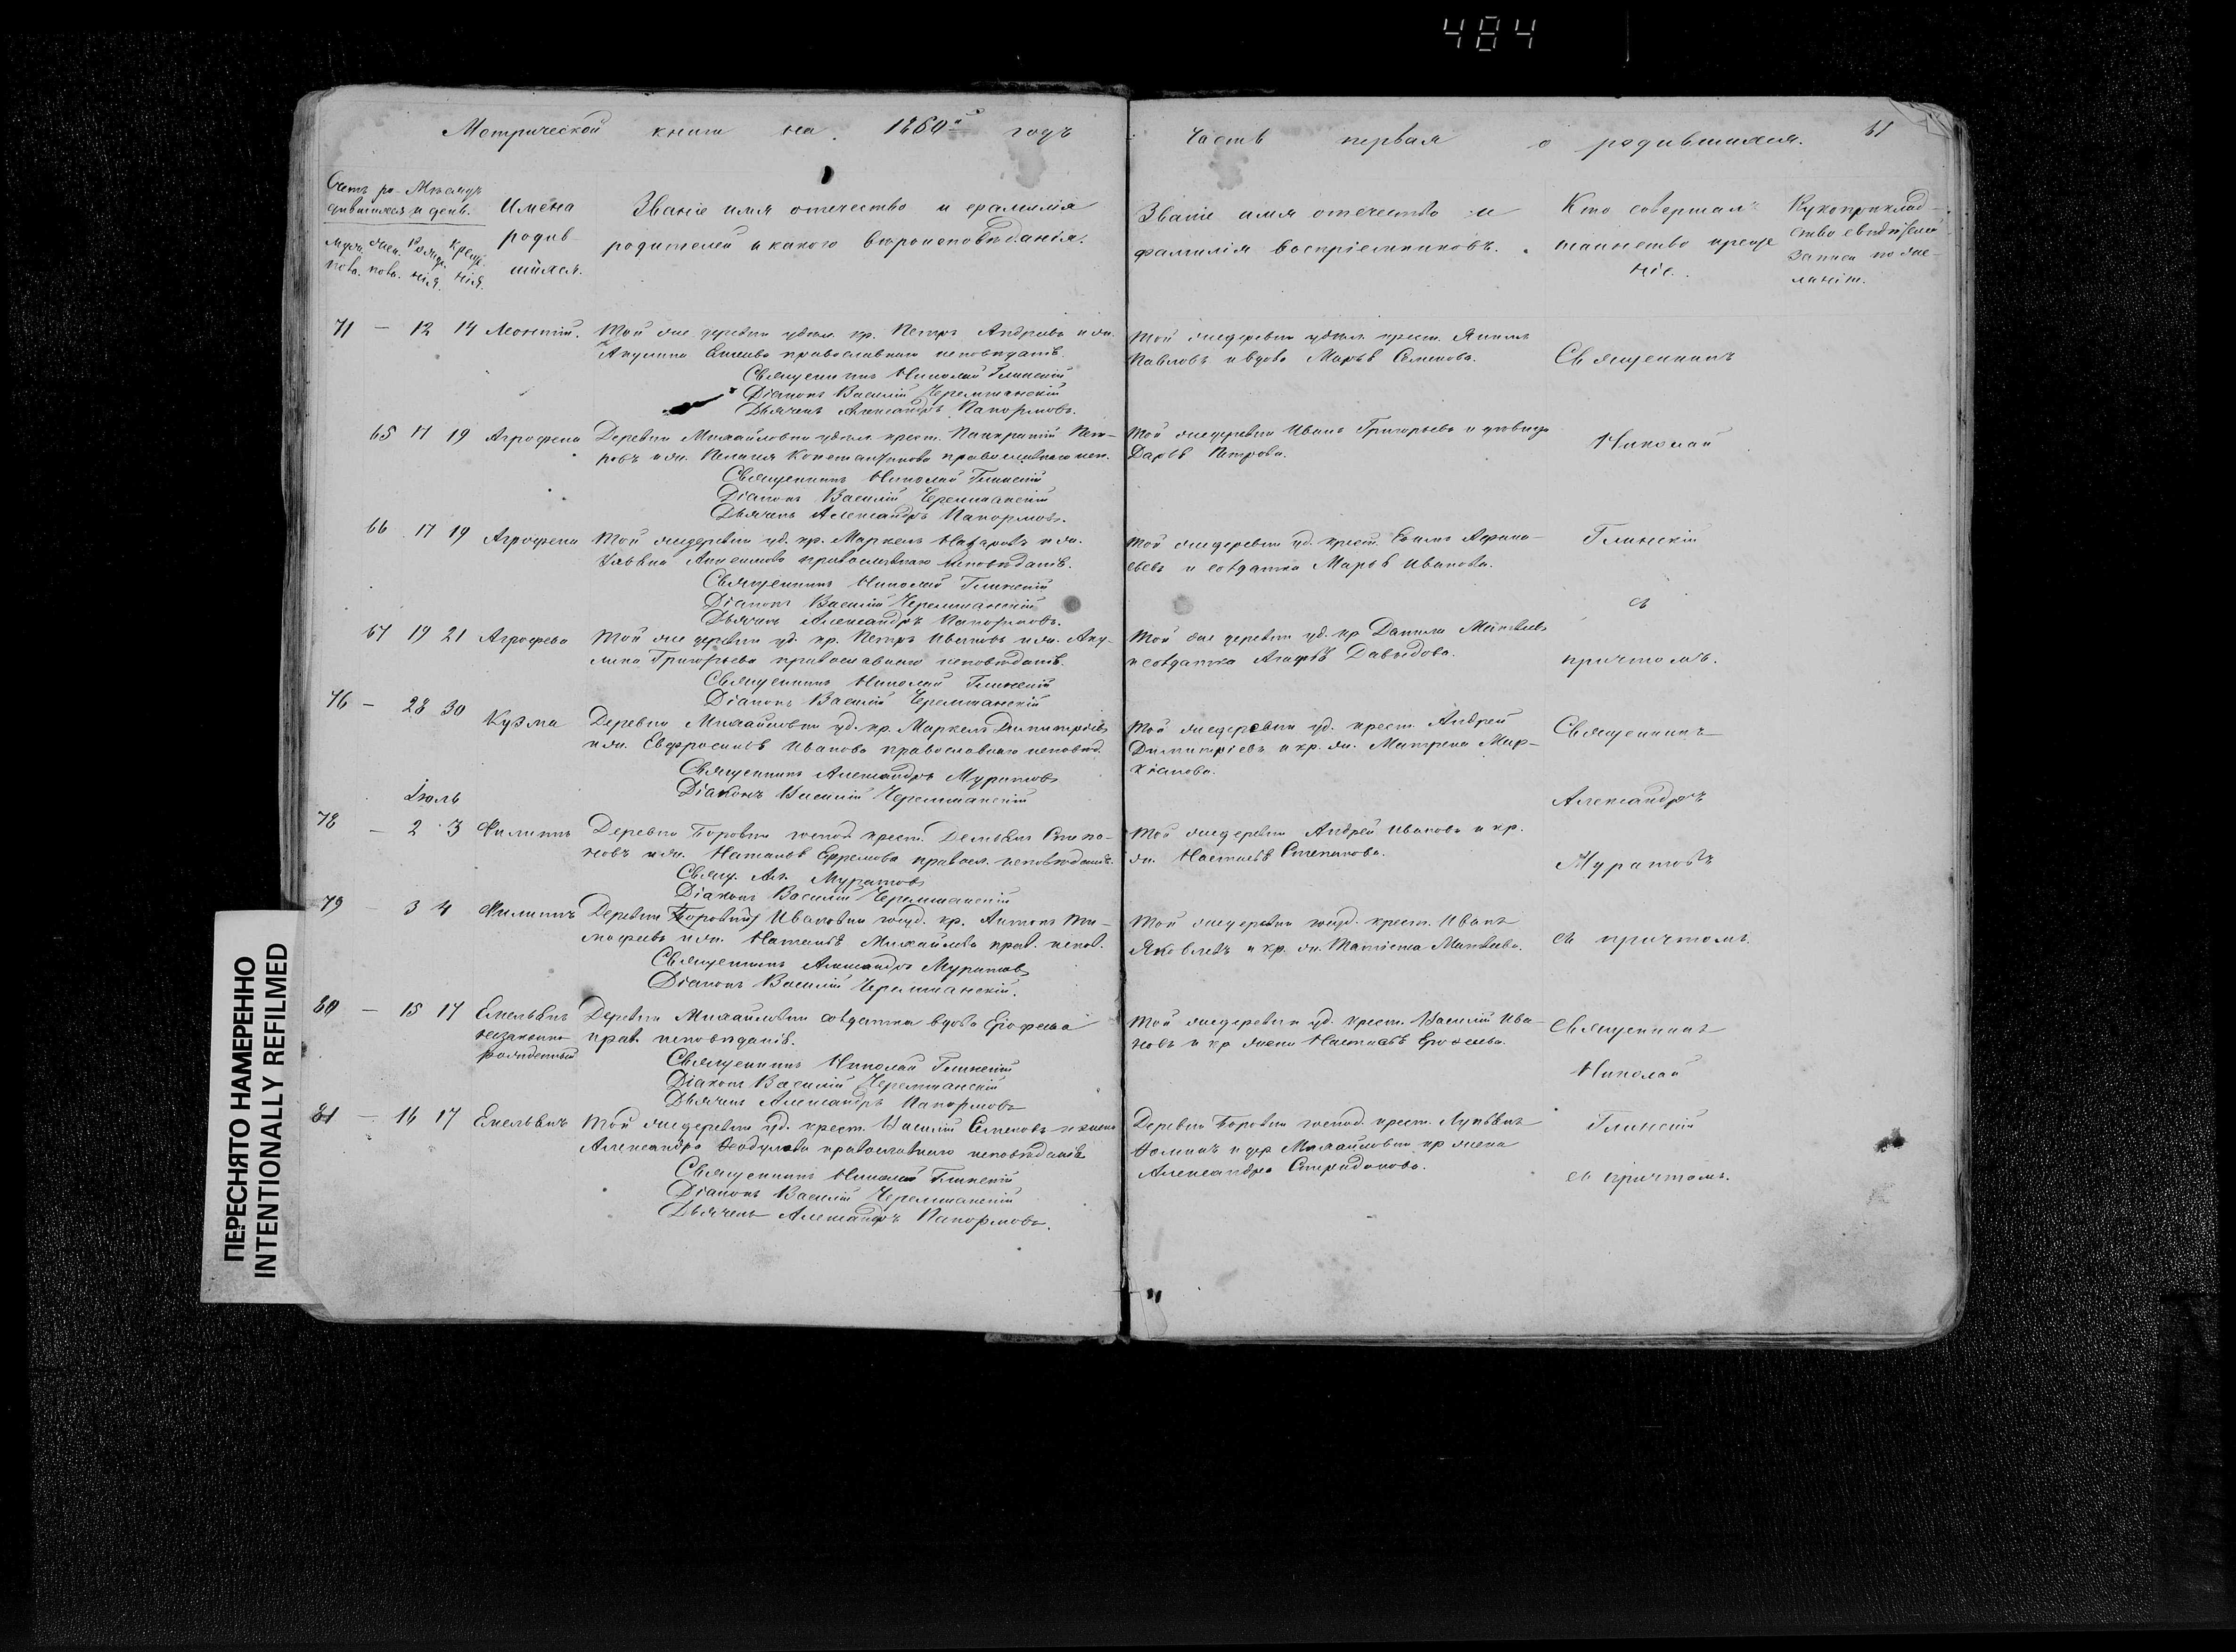 484
Метрической книги на 1860й годъ
Часть первая о родившихся. 61
Счетъ ро- Мѣсяцъ
дившихся и день.
Муж. Жен. Рожде. Креще.
пола. пола. нія. нія.
Имена
родив-
шихся.
Званіе имя отечество и фамилія
родителей и какого вѣроисповѣданія.
Званіе имя отечество и
фамилія воспріемниковъ.
Кто совершалъ
таинство креще
ніе.
Рукоприклад-
ство свидѣтелей
записи по же-
ланію.
71 — 12 14 Леонтій. Той же деревни удѣл. кр. Петръ Андреевъ и ж.
Акулина православнаго исповѣданія.
Священникъ Николай Глинскій
Діаконъ Василій Черемшанскій
Дьячекъ Александръ Панормовъ.
Той же деревни удѣл. крест. Якимъ
Павловъ и вдова Марья Семенова.
Священникъ
65 17 19 Агрофена Деревни Михайловки удѣл. крест. Панкратій Пет-
ровъ и ж. Пелагия Константинова православнаго исп.
Священникъ Николай Глинскій
Діаконъ Василій Черемшанскій
Дьячекъ Александръ Панормовъ.
Той же деревни Иванъ Григорьевъ и дѣвица
Дарья Петрова.
Николай
66 17 19 Агрофена Той же деревни уд. кр. Маркелъ Назаровъ и ж.
православнаго исповѣданія.
Священникъ Николай Глинскій
Діаконъ Василій Черемшанскій
Дьячекъ Александръ Панормовъ.
Той же деревни уд. крест. Афана-
сьевъ и солдатка Марья Иванова.
Глинскій
съ
67 19 21 Агрофена Той же деревни уд. кр. Петръ Ивановъ и ж. Аку-
лина Григорьева православнаго исповѣданія.
Священникъ Николай Глинскій
Діаконъ Василій Черемшанскій
Той же деревни уд. кр. Данила Матвѣевъ
и солдатка Агафья Давыдова.
причтомъ.
76 — 28 30 Кузма Деревни Михайловки уд. кр. Маркелъ Димитріевъ
и ж. Евфросинья Иванова православнаго исповѣд.
Священникъ Александръ Муратовъ
Діаконъ Василій Черемшанскій
Той же деревни уд. крест. Андрей
Димитріевъ и кр. ж. Матрена Мар-
кіанова.
Священникъ
Александръ
Іюль
78 — 2 3 Филиппъ Деревни Боровки господ. крест. Демьянъ Степа-
новъ и ж. Наталья Ефремова правосл. исповѣданія.
Свящ. Ал. Муратовъ
Діаконъ Василій Черемшанскій
Той же деревни Андрей Ивановъ и кр.
ж. Настасья Степанова.
Муратовъ
79 — 3 4 Филиппъ Деревни (Боровки) Ивановки госуд. кр. Антонъ Ти-
мофеевъ и ж. Наталья Михайлова прав. испов.
Священникъ Александръ Муратовъ
Діаконъ Василій Черемшанскій.
Той же деревни госуд. крест. Иванъ
Яковлевъ и кр. ж. Татіана Матвѣева.
съ причтомъ.
80 — 15 17 Емельянъ
незаконно
рожденный
Деревни Михайловки солдатка вдова Ерофеева
прав. исповѣданія.
Священникъ Николай Глинскій
Діаконъ Василій Черемшанскій
Дьячекъ Александръ Панормовъ
Той же деревни уд. крест. Василій Ива-
новъ и кр жена Настасья Ерофеева.
Священникъ
Николай
81 — 16 17 Емельянъ Той же деревни уд. крест. Василій Семеновъ и жена
Александра Ѳеодулова православнаго исповѣданія
Священникъ Николай Глинскій
Діаконъ Василій Черемшанскій
Дьячекъ Александръ Панормовъ.
Деревни Боровки господ. крест. Лукьянъ
Ѳоминъ и дер Михайловки кр жена
Александра Спиридонова.
Глинскій
съ причтомъ.
ПЕРЕСНЯТО НАМЕРЕННО
INTENTIONALLY REFILMED